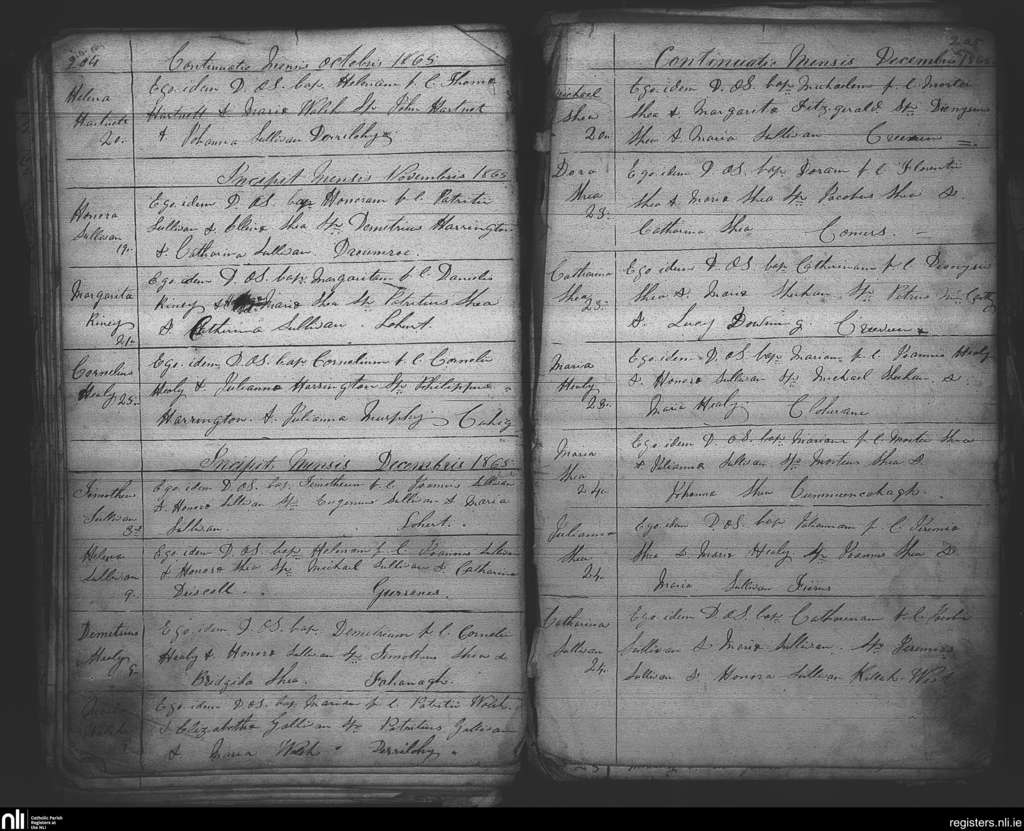 204
Continuatio Mensis Octobris 1865
Helena
Hartnett
20.
Ego idem D. OS. bap. Helenam f. l. Thoma
Hartnett & Maria Walsh Sps. John Hartnet
& Johanna Sullivan Derrilohy
Incipit Mensis Novembris 1865
Honora
Sullivan
19.
Ego idem D. OS. bap. Honoram f. l. Patritii
Sullivan & Ellina Shea Sps. Demetrius Harrington
& Catharina Sullivan Droumroe.
Margarita
Riney
21.
Ego idem D. OS. bap. Margaritam f. l. Danielis
Riney & Maria Shea Sps. Patritius Shea
& Catherina Sullivan. Lohert.
Cornelius
Healy 25.
Ego idem D. OS. bap. Cornelium f. l. Cornelii
Healy & Julianna Harrington Sps. Philippus
Harrington & Julianna Murphy
Incipit Mensis Decembris 1865
Timotheus
Sullivan
3
Ego idem D. OS. bap. Timotheum f. l. Joannis Sullivan
& Honora Sullivan Sps. Eugenius Sullivan & Maria
Sullivan. Lohert.
Helena
Sullivan
9.
Ego idem D. OS. bap. Helenam f. l. Joannis Sullivan
& Honora Shea Sps. Michael Sullivan & Catharina
Driscoll.
Demetrius
Healy
9.
Ego idem D. OS. bap. Demetrium f. l. Cornelii
Healy & Honora Sullivan Sps. Timotheus Shea &
Bridgida Shea. Fahanagh.
Ego idem D. OS. bap. Mariam f. l. Patritii Walsh
& Elizabetha Galliván Sps. Patritius Gallivan
& Maria Walsh Derrilohy
Continuatio Mensis Decembris 1865
Michael
Shea
20.
Ego idem D. OS. bap. Michaelem f. l. Mortii
Shea & Margarita Fitzgerald Sps. Dionysius
Shea & Maria Sullivan
Dora
Shea
23.
Ego idem D. OS. bap. Doram f. l. Florentii
Shea & Maria Shea Sps. Jacobus Shea &
Catharina Shea Comers.
Catharina
Shea
23.
Ego idem D. OS. bap. Catharinam f. l. Dionysii
Shea & Maria Sheehan Sps. Petrus
& Lucy Downing
Maria
Healy
23.
Ego idem D. OS. bap. Mariam f. l. Joannis Healy
& Honora Sullivan Sps. Michael Sheehan &
Maria Healy
Maria
Shea
24.
Ego idem D. OS. bap. Mariam f. l. Mortii Shea
& Julianna Sullivan Sps. Mortius Shea &
Johanna Shea Cummeenahagh.
Julianna
Shea
24.
Ego idem D. OS. bap. Juliannam f. l. Jeremia
Shea & Maria Healy Sps. Joannis Shea &
Maria Sullivan
Catharina
Sullivan
24.
Ego idem D. OS. bap. Catharinam f. l. Jacobi
Sullivan & Maria Sullivan. Sps. Jeremias
Sullivan & Honora Sullivan
nli
Catholic Parish
Registers at
the NLI
registers.nli.ie